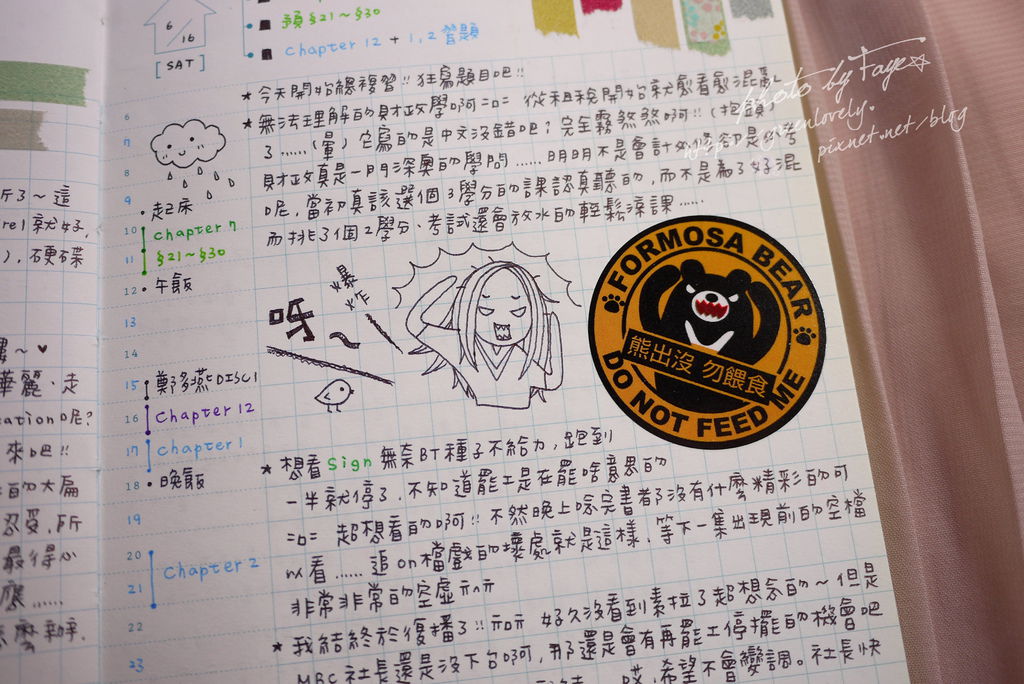 6/16
[SAT]
類 §21~§30
Chapter 12 + 1, 2 習題
★ 今天開始總複習!! 狂寫題目吧!!
★ 無法理解的財政學啊 =口= 從租稅開始就愈看愈混亂
了……(暈) 它寫的是中文沒錯吧?完全霧煞煞啊!!(抱頭)
財政真是一門深奧的學問……明明不是會計必修卻是必考
呢,當初真該選個3學分的課認真聽的,而不是為了好混
而挑了個2學分、考試還會放水的輕鬆涼課……
photo by Faye☆
greenlovely.
pixnet.net/blog
6
7
8
9 • 起床
10 Chapter 7
11 §21~§30
12 • 午飯
13
14
15 • 鄭多燕 DISC1
16 Chapter 12
17 Chapter 1
18 • 晚飯
19
20
21 Chapter 2
23
呀~
爆炸
FORMOSA BEAR
熊出沒 勿餵食
DO NOT FEED ME
★ 想看 Sign 無奈BT種子不給力,跑到
一半就停了,不知道罷工是在罷啥意思的
=口= 超想看的啊!! 不然晚上唸完書都沒有什麼精彩的可
以看……追on檔戲的壞處就是這樣,等下一集出現前的空檔
非常非常的空虛
★ 我結終於復播了!! 好久沒看到素拉了超想念的~但是
MBC社長還是沒下台啊,那還是會有再罷工停擺的機會吧
哎,希望不會變調。社長快
所3~這
rel就好,
),硬碟
華麗、走
cation呢?
來吧!!
的大扁
忍受,所
最得心
應……